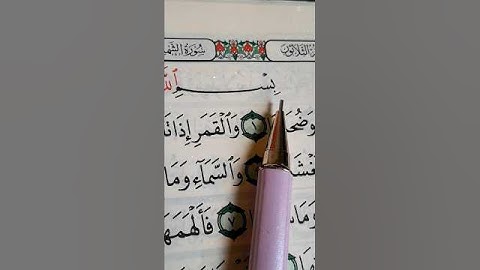 سُورَةُ الشَّمْ الثَّلَاثُونَ
بِسْمِ ٱللَّ
وَضُحَا ١ وَٱلْقَمَرِ إِذَا تَ
غْشَا وَٱلسَّمَآءِ وَمَا
وَمَا ٧ فَأَلْهَمَهَا